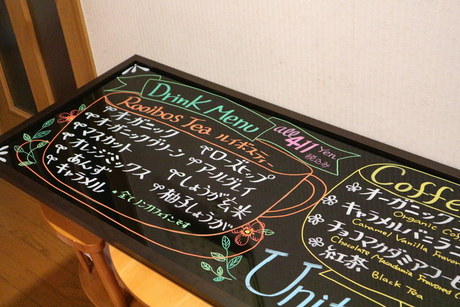 Drink Menu
all 411 Yen
税込み
Rooibos Tea ルイボスティー
オーガニック
オーガニックグリーン
マスカット
オレンジミックス
あんず
キャラメル
ローズヒップ
アールグレイ
しょうがと米
柚子しょうが
Coffee
オーガニック
Organic
キャラメルバニラ
Caramel Vanilla Flavored
チョコマカダミアコーヒー
Chocolate Macadamia Flavored
紅茶
Black Tea